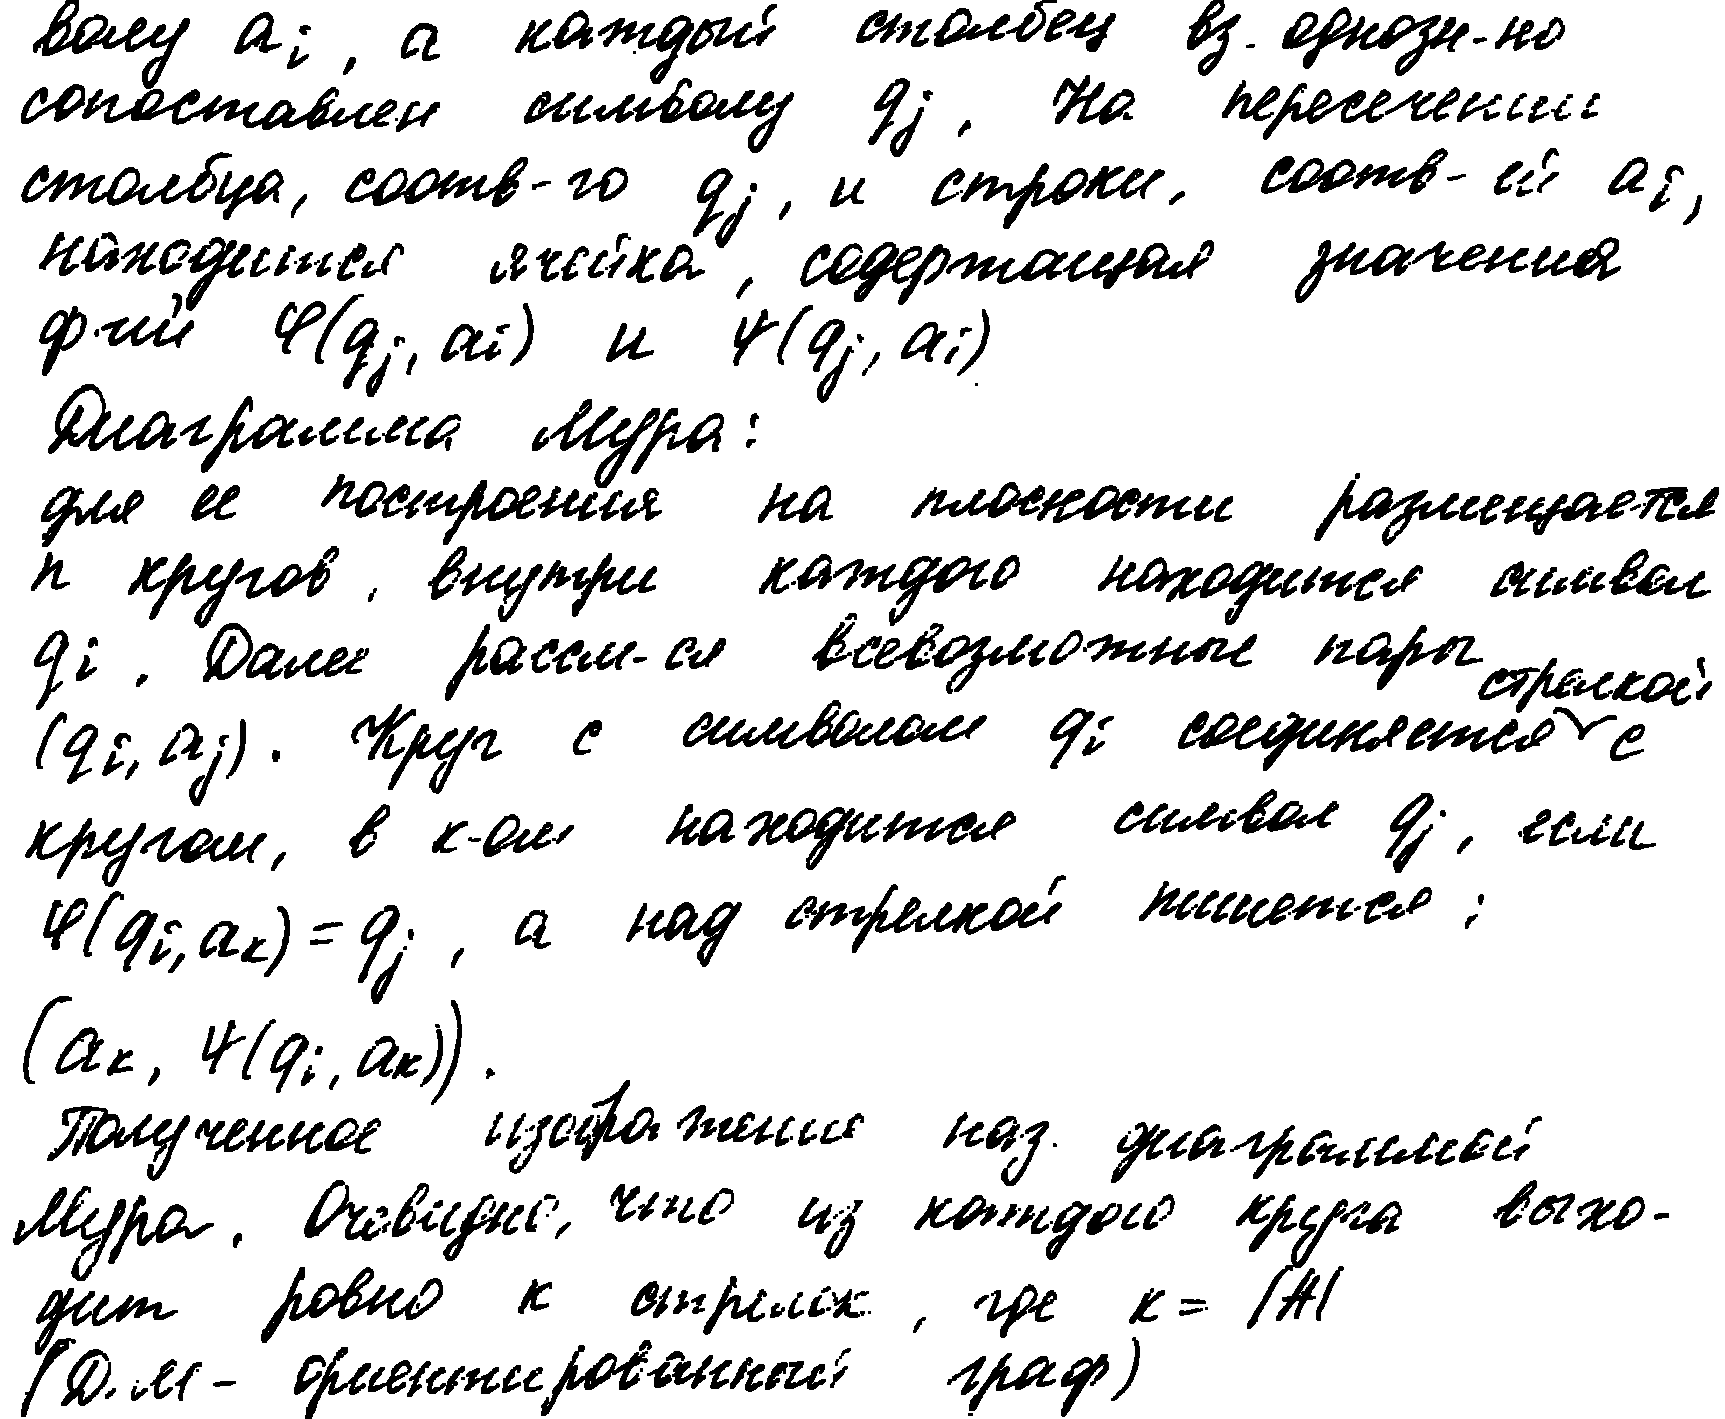 волу aᵢ, а каждый столбец вз. однозн-но
сопоставлен символу qⱼ. На пересечении
столбца, соотв-го qⱼ, и строки, соотв-ей aᵢ,
находится ячейка, содержащая значения
ф-ий φ(qⱼ, aᵢ) и ψ(qⱼ, aᵢ)
Диаграмма Мура:
для ее построения на плоскости размещается
n кругов, внутри каждого находится символ
qᵢ. Далее рассм-ся всевозможные пары
(qᵢ, aⱼ). Круг с символом qᵢ соединяется стрелкой с
кругом, в к-ом находится символ qⱼ, если
φ(qᵢ, aₖ) = qⱼ, а над стрелкой пишется:
(aₖ, ψ(qᵢ, aₖ)).
Полученное изображение наз. диаграммой
Мура. Очевидно, что из каждого круга выхо-
дит ровно к стрелок, где к = |A|
(Д.М - ориентированный граф)